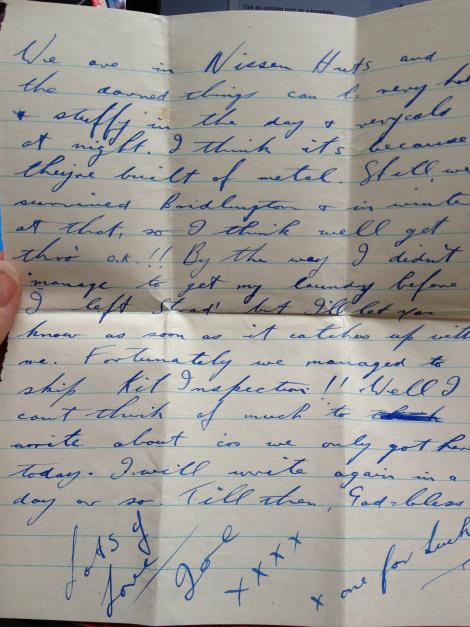 We are in Nissen Huts and
the darned things can be very hot
& stuffy in the day & very cold
at night. I think it's because
they're built of metal. Still, we
survived Bridlington & in winter
at that, so I think we'll get
thro' o.k !! By the way I didn't
manage to get my laundry before
I left but I'll let you
know as soon as it catches up with
me. Fortunately we managed to
skip Kit Inspection !! Well I
cant think of much to
write about cos we only got here
today. I will write again in a
day or so. Till then, God-bless
Lots of
Love
x x x x
x one for luck